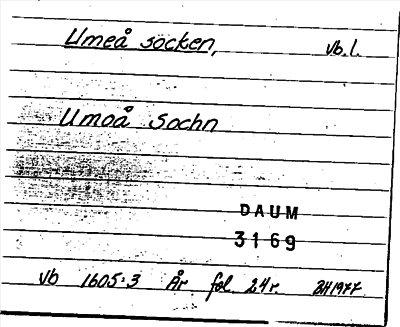 Umeå socken, vb.l.
Umoå Sochn
DAUM
3169
Vb 1605:3 År fol 24r. BH1977